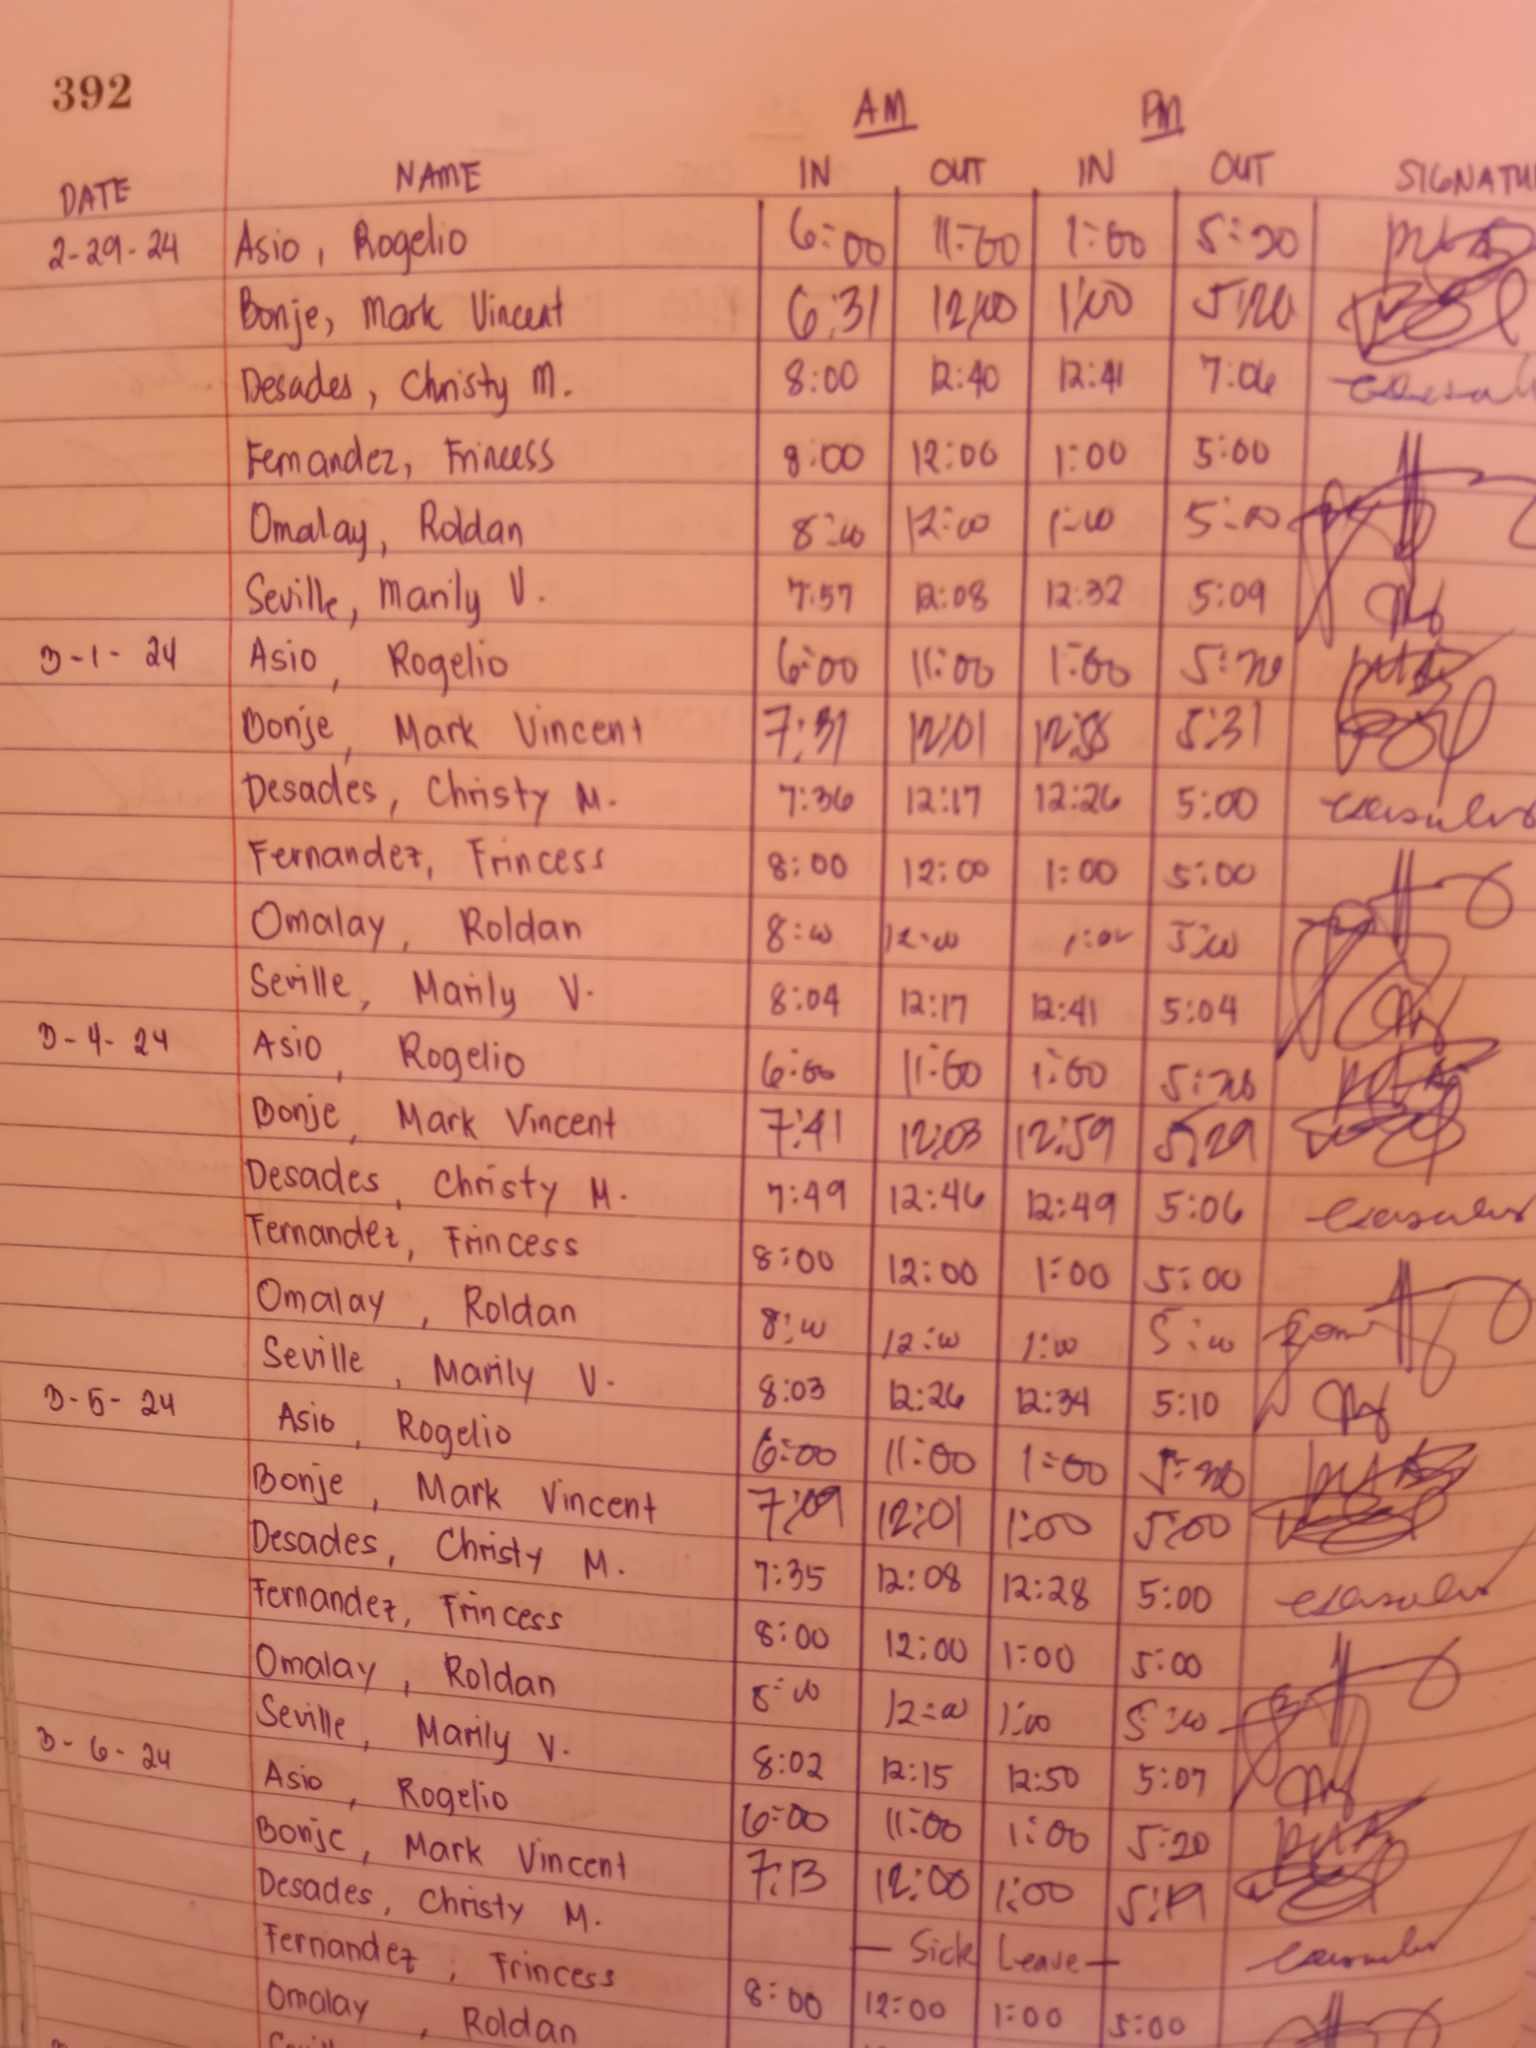 392
AM PM
DATE NAME IN OUT IN OUT SIGNATU
2-29-24 Asio, Rogelio 6:00 11:00 1:00 5:20
Bonje, Mark Vincent 6:31 12:00 1:00 5:20
Desades, Christy M. 8:00 12:40 12:41 7:06
Fernandez, Frincess 8:00 12:00 1:00 5:00
Omalay, Roldan 8:00 12:00 1:00 5:00
Seville, Marily V. 7:57 12:08 12:32 5:09
3-1-24 Asio, Rogelio 6:00 11:00 1:00 5:20
Bonje, Mark Vincent 7:31 12:01 12:58 5:31
Desades, Christy M. 7:36 12:17 12:26 5:00
Fernandez, Frincess 8:00 12:00 1:00 5:00
Omalay, Roldan 8:00 12:00 1:00 5:00
Seville, Marily V. 8:04 12:17 12:41 5:04
3-4-24 Asio, Rogelio 6:00 11:00 1:00 5:20
Bonje, Mark Vincent 7:41 12:03 12:59 5:29
Desades, Christy M. 7:49 12:46 12:49 5:06
Fernandez, Frincess 8:00 12:00 1:00 5:00
Omalay, Roldan 8:00 12:00 1:00 5:00
Seville, Marily V. 8:03 12:26 12:34 5:10
3-5-24 Asio, Rogelio 6:00 11:00 1:00 5:20
Bonje, Mark Vincent 7:09 12:01 1:00 5:00
Desades, Christy M. 7:35 12:08 12:28 5:00
Fernandez, Frincess 8:00 12:00 1:00 5:00
Omalay, Roldan 8:00 12:00 1:00 5:00
Seville, Marily V. 8:02 12:15 12:50 5:07
3-6-24 Asio, Rogelio 6:00 11:00 1:00 5:20
Bonje, Mark Vincent 7:13 12:00 1:00 5:19
Desades, Christy M. — Sick Leave —
Fernandez, Frincess 8:00 12:00 1:00 5:00
Omalay, Roldan